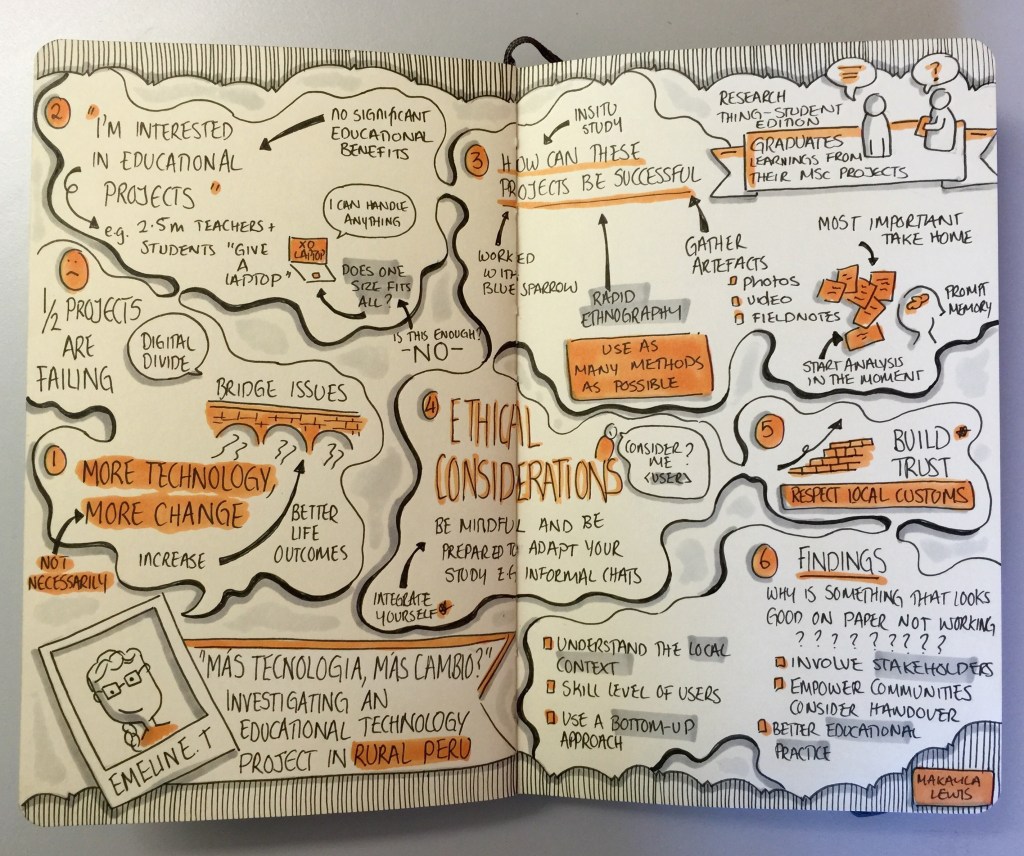 RESEARCH
THING-STUDENT
EDITION
GRADUATES
LEARNINGS FROM
THEIR MSC PROJECTS
?
EMELINE.T
"MÁS TECNOLOGIA, MÁS CAMBIO?"
INVESTIGATING AN
EDUCATIONAL TECHNOLOGY
PROJECT IN RURAL PERU
1
MORE TECHNOLOGY,
MORE CHANGE
NOT
NECESSARILY
INCREASE
BETTER
LIFE
OUTCOMES
BRIDGE ISSUES
??
??
??
DIGITAL
DIVIDE
1/2 PROJECTS
ARE
FAILING
2
"I'M INTERESTED
IN EDUCATIONAL
PROJECTS"
NO SIGNIFICANT
EDUCATIONAL
BENEFITS
e.g. 2.5m TEACHERS +
STUDENTS "GIVE
A
LAPTOP"
XO
LAPTOP
I CAN HANDLE
ANYTHING
DOES ONE
SIZE FITS
ALL?
IS THIS ENOUGH?
-NO-
3
HOW CAN THESE
PROJECTS BE SUCCESSFUL
INSITU
STUDY
WORKED
WITH
BLUE SPARROW
RAPID
ETHNOGRAPHY
USE AS
MANY METHODS
AS POSSIBLE
GATHER
ARTEFACTS
PHOTOS
VIDEO
FIELDNOTES
MOST IMPORTANT
TAKE HOME
PROMPT
MEMORY
START ANALYSIS
IN THE MOMENT
4
ETHICAL
CONSIDERATIONS
CONSIDER?
ME
<USER>
BE MINDFUL AND BE
PREPARED TO ADAPT YOUR
STUDY E.G. INFORMAL CHATS
INTEGRATE
YOURSELF*
5
BUILD *
TRUST
RESPECT LOCAL CUSTOMS
6
FINDINGS
WHY IS SOMETHING THAT LOOKS
GOOD ON PAPER NOT WORKING
? ? ? ? ? ? ? ? ?
UNDERSTAND THE LOCAL
CONTEXT
SKILL LEVEL OF USERS
USE A BOTTOM-UP
APPROACH
INVOLVE STAKEHOLDERS
EMPOWER COMMUNITIES
CONSIDER HANDOVER
BETTER EDUCATIONAL
PRACTICE
MAKAYLA
LEWIS